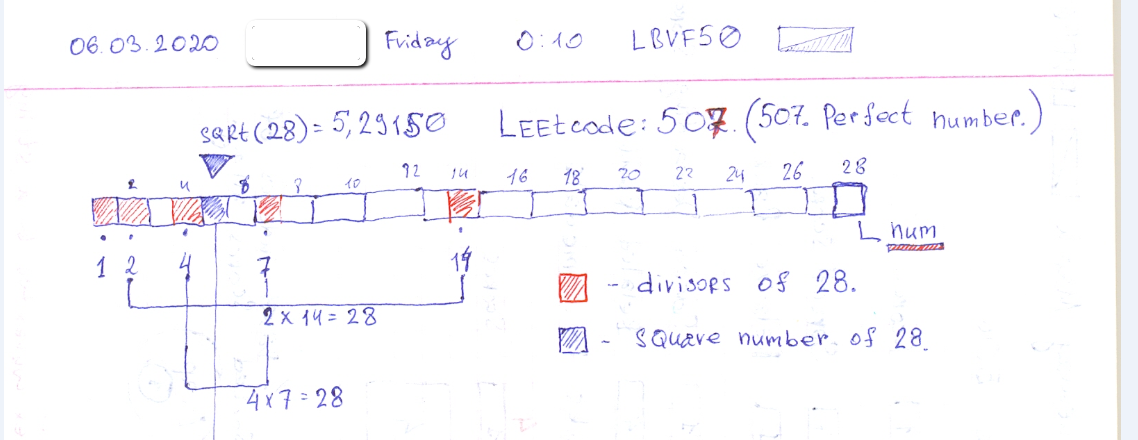 06.03.2020 Friday 0:10 LBVF50
sqRt(28)=5,29150 LEEtcode: 507. (507. Perfect number.)
2 4 6 8 10 12 14 16 18 20 22 24 26 28
num
1 2 4 7 14
- divisoRs of 28.
2 x 14 = 28
- SQuare number of 28.
4 x 7 = 28